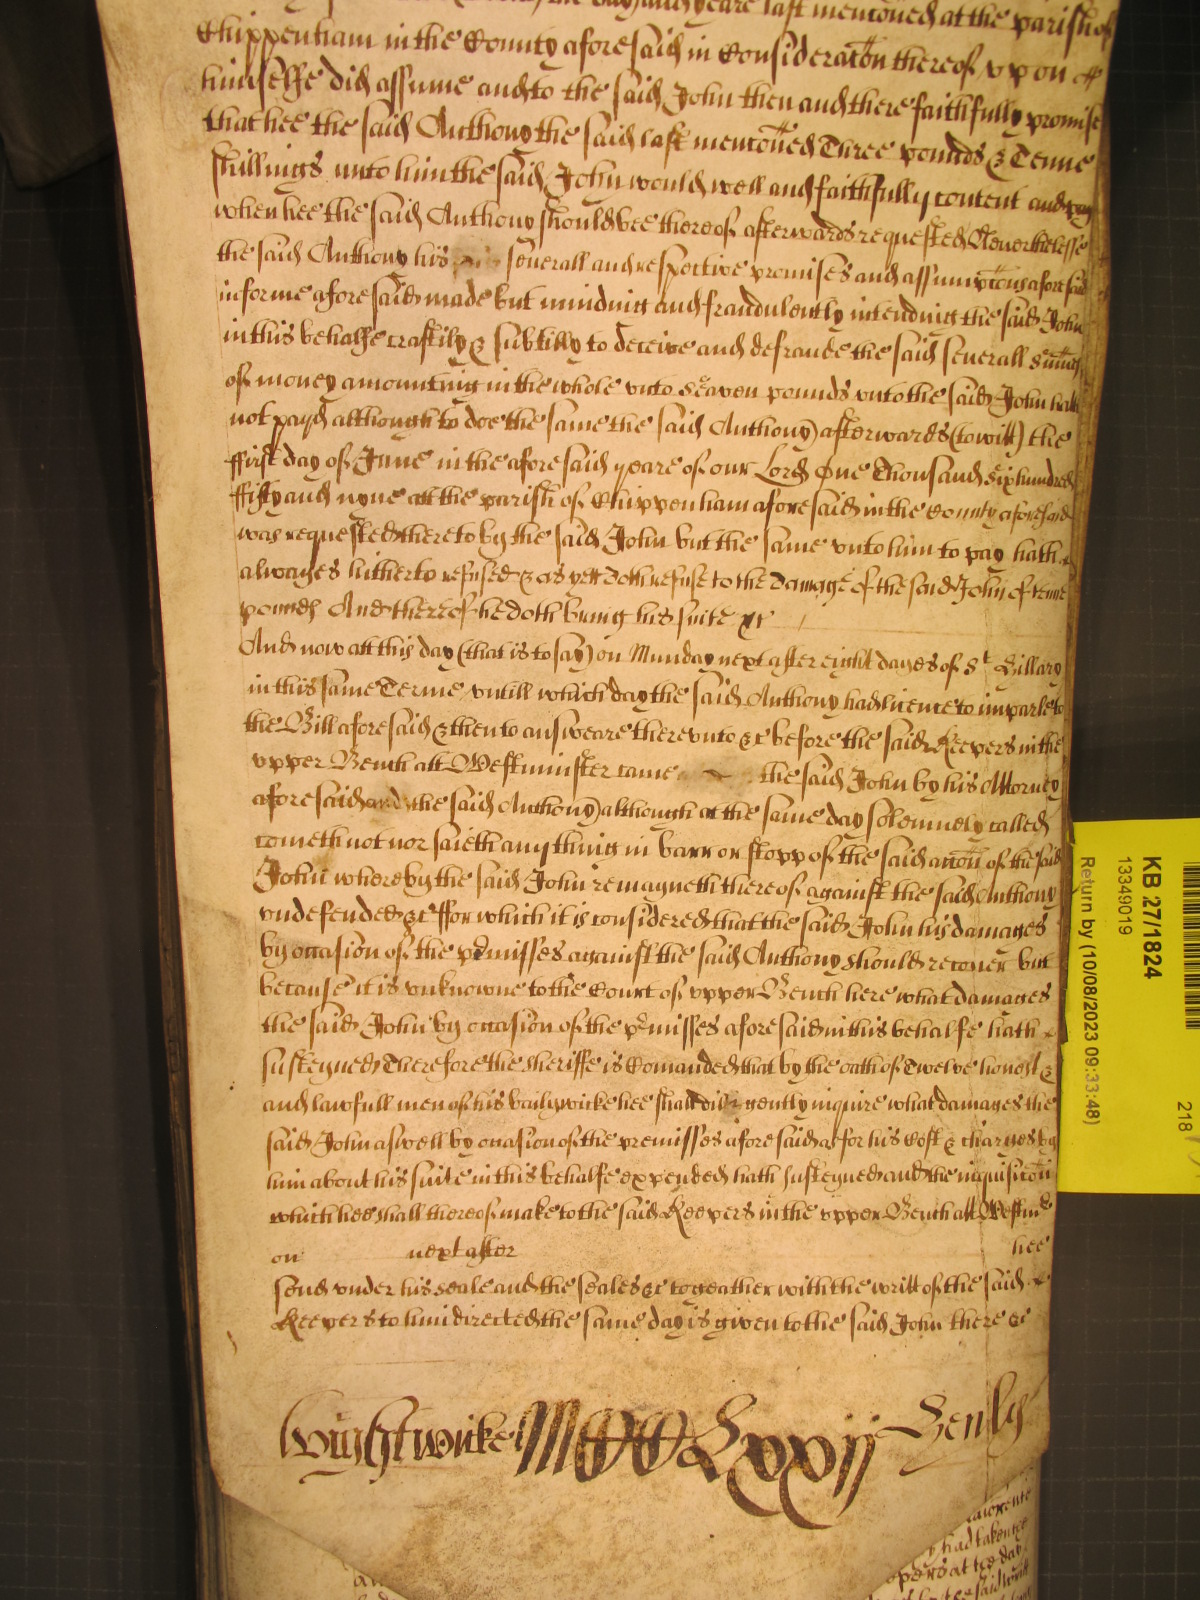 the day and yeare last menconed at the parish of
Chippenham in the County aforesaid in Consideracon thereof vpon
himselfe did assume and to the said John then and there faithfully promise
that hee the said Anthony the said last menconed Three pounds & Tenne
shillings unto him the said John would well and faithfully content and pay
when hee the said Anthony should bee thereof afterwards requested Neverthelesse
the said Anthony his severall and respective promises and assumpcons aforesaid
in forme aforesaid made but minding and fraudulently intending the said John
in this behalfe craftily & subtilly to deceive and defraude the said severall summes
of money amounting in the whole vnto seaven pounds vnto the said John hath
not payd although to doe the same the said Anthony afterwards (towitt) the
ffirst day of June in the aforesaid yeare of our Lord One Thousand six hundred
ffifty and nyne att the parish of Chippenham aforesaid in the County aforesaid
was requested thereto by the said John but the same vnto him to pay hath
alwayes hitherto refused & as yett doth refuse to the damage of the said John of tenne
pounds And thereof he doth bring his suite &c
And now att this day (that is to say) on Munday next after eight dayes of St Hillary
in this same Terme vntill which day the said Anthony had licence to imparle to
the Bill aforesaid & then to answeare therevnto &c before the said Keepers in the
vpper Bench att Westminster came the said John by his Attorney
aforesaid and the said Anthony although at the same day solemnely called
cometh not nor saieth any thing in barr or stopp of the said accon of the said
John whereby the said John remayneth thereof against the said Anthony
vndefended &c ffor which it is considered that the said John his damages
by occasion of the p'misses against the said Anthony should recover but
because it is vnknowne to the Court of vpper Bench here what damages
the said John by occasion of the p'misses aforesaid in this behalfe hath
susteyned Therefore the sheriffe is Comanded that by the oath of Twelve honest &
and lawfull men of his bailywicke hee shall diligently inquire what damages the
said John aswell by occasion of the premisses aforesaid as for his Cost & charges by
him about his suite in this behalfe expended hath susteyned and the inquisicon
which hee shall thereof make to the said Keepers in the vpper Bench att Westm
on next after hee
send vnder his seale and the seales &c togeather with the writt of the said
Keepers to him directed the same day is given to the said John there &c
Wightwicke MCCCLxxij Henly
KB 27/1824
13349019
Return by (10/08/2023 09:33:48)
218
had taken
pers at the day
the said writt